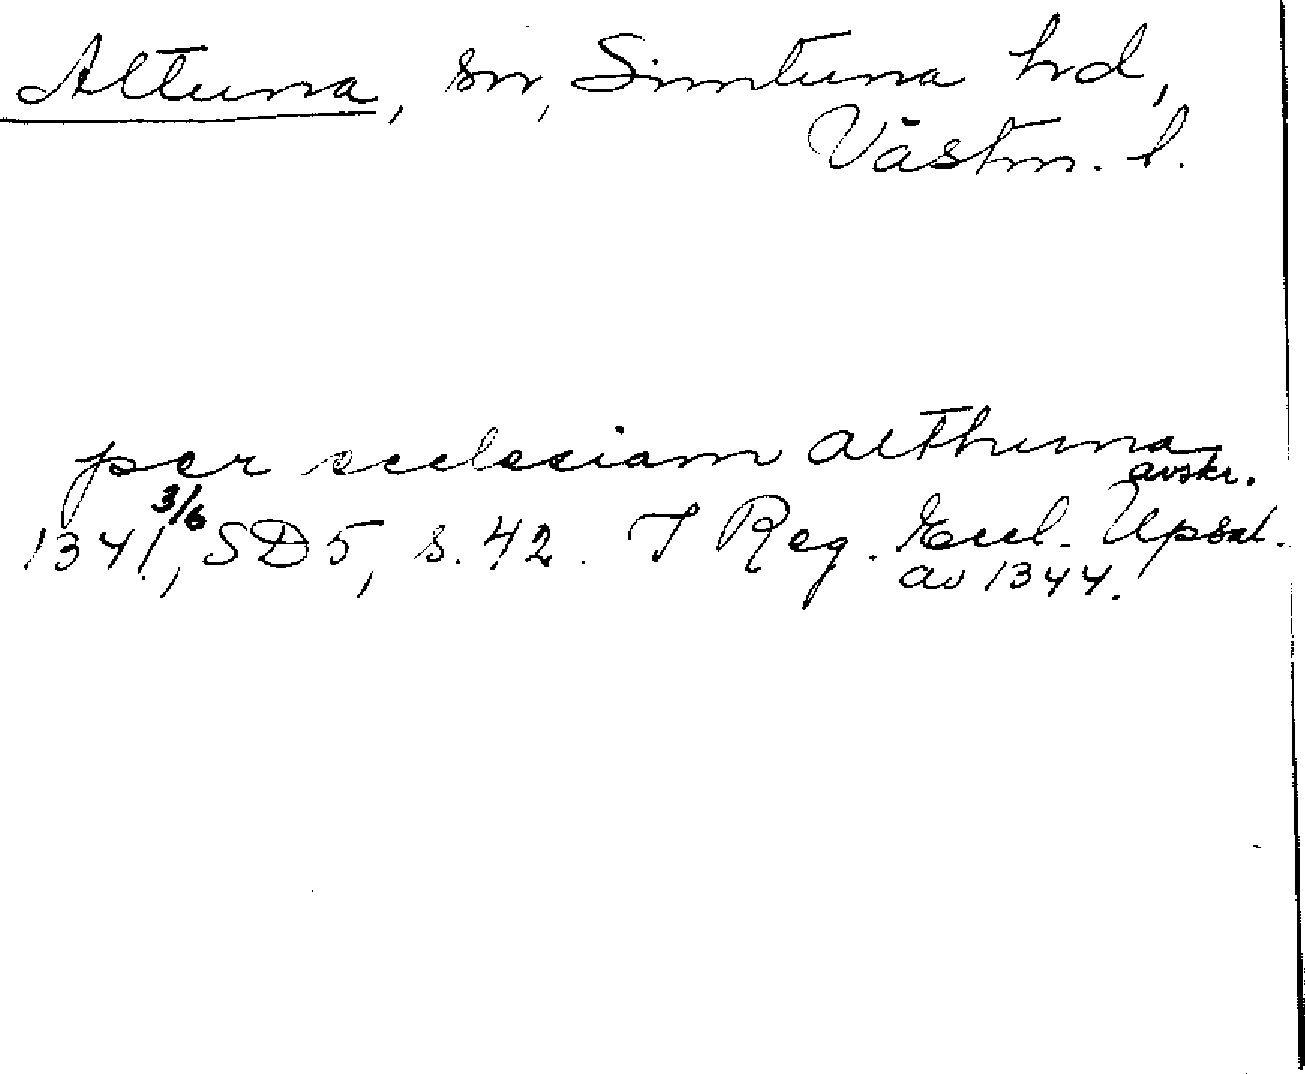 Altuna, sn, Simtuna hd,
Västm. l.
per ecclesiam althuna
avskr.
1341 3/6, SD 5, s. 42. I Reg. Eccl. Upsal.
av 1344.